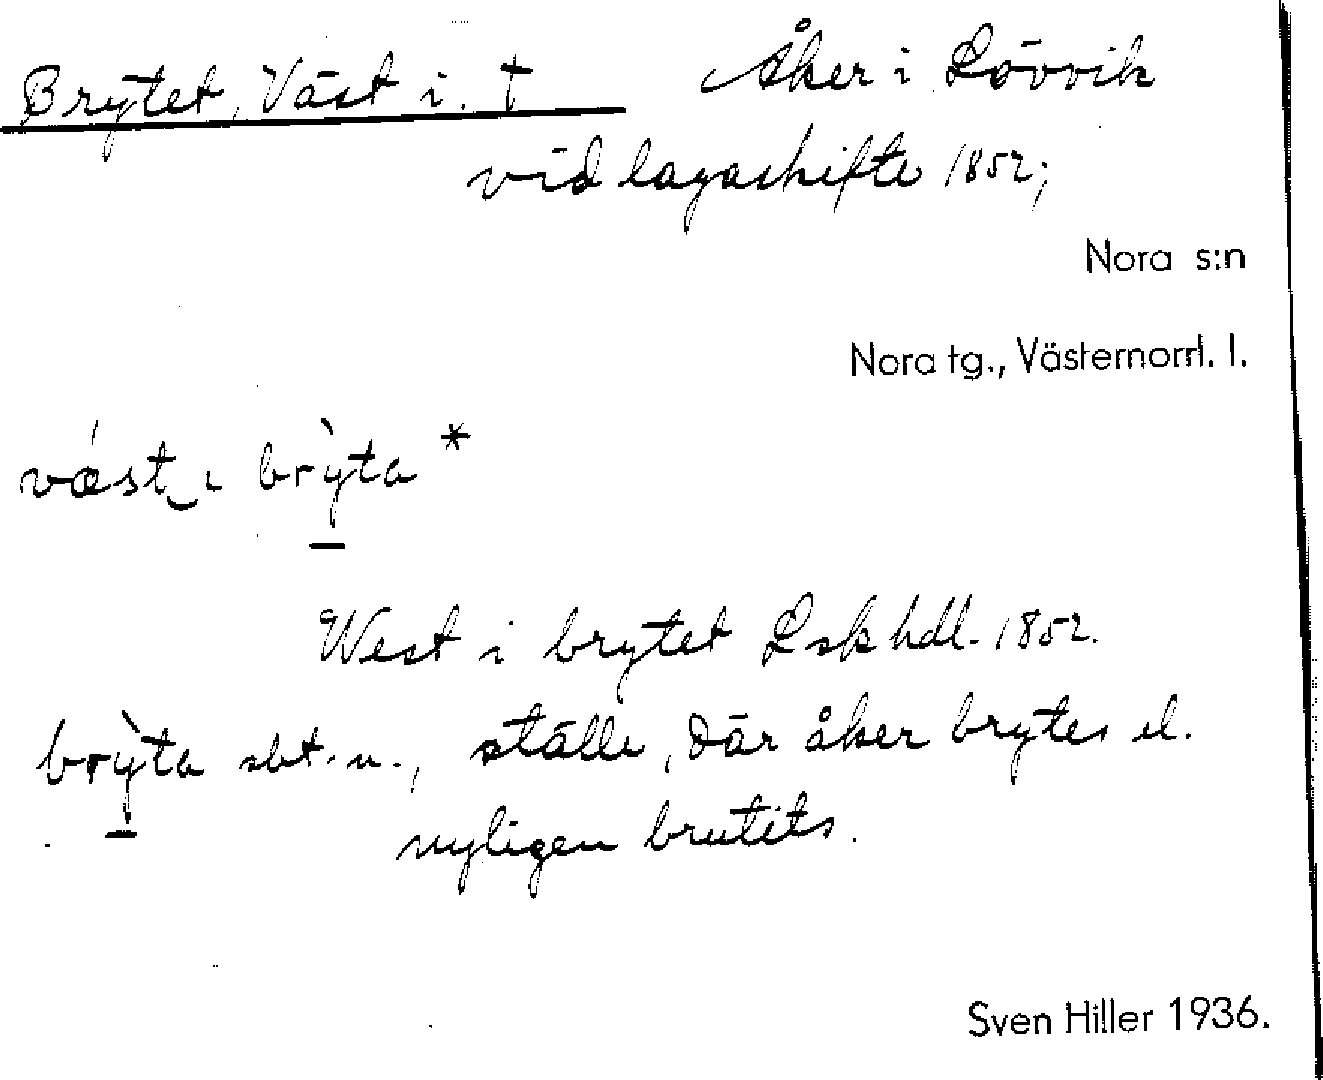 Brytet, Väst i. † Åker i Lövvik
vid lagaskifte 1852;
Nora s:n
Nora tg., Västernorrl. l.
væst‿ɩ brỳta *
West i brytet Lskhdl. 1852.
brỳta sbt. n., ställe, där åker brytes el.
nyligen brutits.
Sven Hiller 1936.